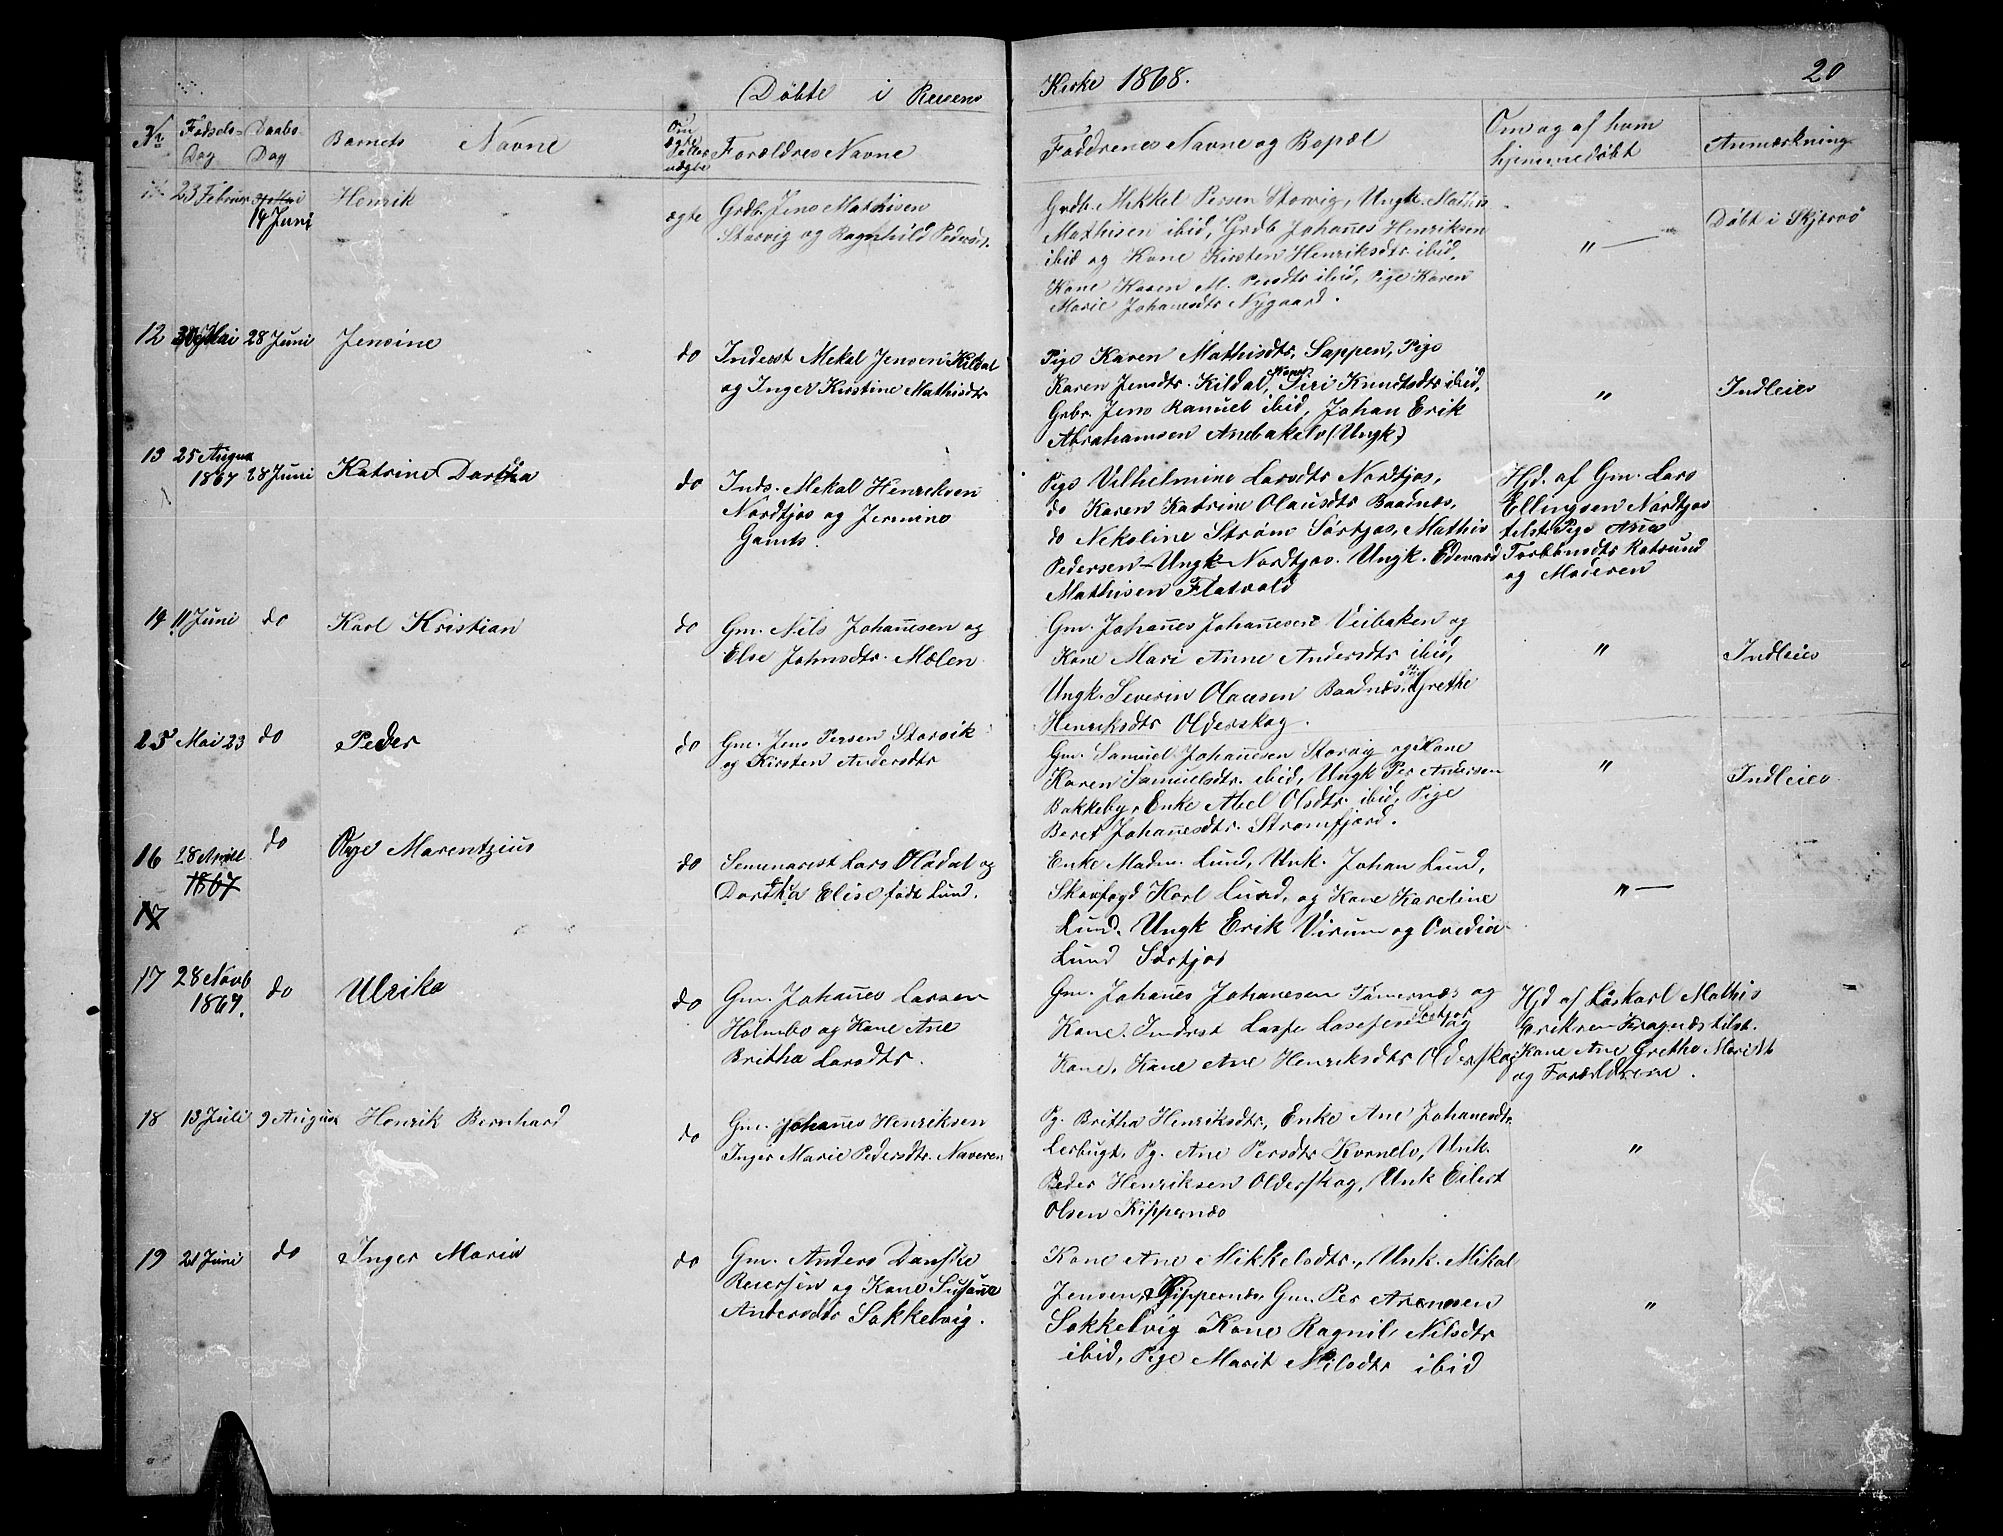 20
Döbte i Reisens Kirke 1868.
Nr Fødsels-Dag Daabs Dag Barnets Navne Om ægte eller uægte Forældres Navne
Faddrenes Navne og Bopæl Om og af hvem hjemmedøbt Anmærkning
11 23 Februar 14 Juni Henrik ægte Grdb. Jens Mathisen
Storvig og Ragnhild Pedersdt.
Grdb. Mikkel Persen Storvig, Ungk. Mathis
Mathisen ibid, Grdb Johañes Henriksen
ibid og Kone Kirsten Henriksdtr ibid,
Kone Karen M. Persdtr ibid, Pige Karen
Marie Johanesdtr Nygaard.
"— Døbt i Skjervø
12 Mai 28 Juni Jensine do Inderst Mekel Jensen Kildal
og Inger Kirstine Mathisdtr
Pige Karen Mathisdtr. Sappen, Pige
Karen Jensdtr. Kildal, Kone Siri Knudtsdtr ibid,
Grbr. Jens Ranuel ibid, Johan Erik
Abrahamsen (Ungk)
" Indleies
13 25 August 1867 28 Juni Katrine Dorthea do Inds. Mekal Henriksen
Nordtjos og Jermine
Pige Vilhelmine Larsdtr Nordtjos,
do Karen Katrine Olausdtr Baadnes,
do Nekoline Strøm Sørtjos, Mathis
Pedersen - Ungk - Nordtjos. Ungk. Edevard
Mathisen Flatvold
Hjd. af Gm. Lars
Ellingsen Nordtjos
tilst. Pige Ane
Torbensdtr Rotsund
og Moderen
14 11 Juni do Karl Kristian do Gm. Nils Johañesen og
Else Johnsdtr. Mælen
Gm. Johañes Johañesen Veibaken og
Kone Mari Anne Andersdtr ibid,
Ungk. Severin Olausen Baadnes, Pig Grethe
Henriksdtr Olderskog.
" Indleies
15 Mai 23 do Peder do Gm. Jens Persen Storvik
og Kirsten Andersdtr
Gm. Samuel Johañesen Storvig og Kone
Karen Samuelsdtr. ibid, Ungk Per Andersen
Bakkeby, Enke Abel Olsdtr ibid, Pige
Beret Johañesdtr. Stromfjord.
" Indleies
16 28 April 1867 do Marentzius do Semenarist Lars Oladal og
Dorthea Elise født Lund.
Enke Madm. Lund, Unk. Johan Lund,
Skovfogd Karl Lund, og Kone Kareline
Lund. Ungk Erik Virum og Ovedia
Lund Sørtjos
"—
17
17 28 Novb 1867. do Ulrika do Gm. Johañes Larsen
Holmbo og Kone Ane
Britha Larsdtr.
Gm. Johañes Johanesen Tømernes og
Kone. Indrest Sørtjos og
Kone, Kone Ane Henriksdtr Olderskog
Hjd af Løskarl Mathis
Eriksen Kragnæs tilst.
Kone Ane Grethe
og Forældrene.
18 13 Juli 9 August Henrik Bernhard do Gm. Johañes Henriksen
Inger Marie Pedersdtr. Naveren
Pg. Britha Henriksdtr, Enke Ane Johanesdtr
Lerbugt, Pg. Ane Persdtr Kvenelv, Unk.
Peder Henriksen Olderskog, Unk Eilert
Olsen Kippernæs
"
19 21 Juni do Inger Maria do Gm. Anders Danske
Reiersen og Kone Susañe
Andersdtr Sokkelvig.
Kone Ane Mikkelsdtr., Unk. Mikal
Jensen, Kippernæs, Gm. Per Arensen
Sokkelvig Kone Ragnil Nilsdtr
ibid, Pige Marit Nilsdtr ibid
"